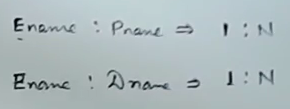 Ename : Pname ⇒ 1 : N
Ename : Dname ⇒ 1 : N